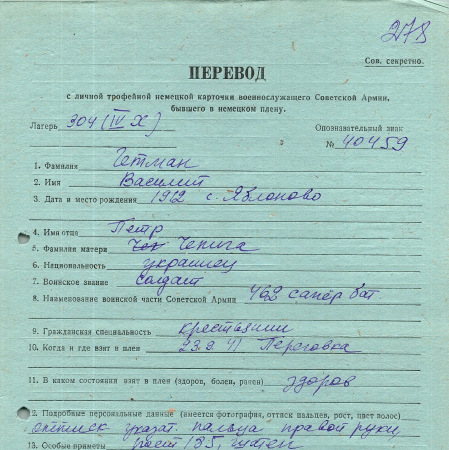 278
Сов. секретно.
ПЕРЕВОД
с личной трофейной немецкой карточки военнослужащего Советской Армии,
бывшего в немецком плену.
Лагерь 304 (IV Х) Опознавательный знак
№ 40459
1. Фамилия Гетман
2. Имя Василит
3. Дата и место рождения 1912 с. Яблоново
4. Имя отца Петр
5. Фамилия матери Чепига
6. Национальность украинец
7. Воинское звание солдат
8. Наименование воинской части Советской Армии 462 сапер бат
9. Гражданская специальность крестьянин
10. Когда и где взят в плен 23.9.41 Переговка
11. В каком состоянии взят в плен (здоров, болен, ранен) здоров
12. Подробные персональные данные (имеется фотография, оттиск пальцев, рост, цвет волос)
оттиск указат. пальца правой руки,
13. Особые приметы рост 185, шатен